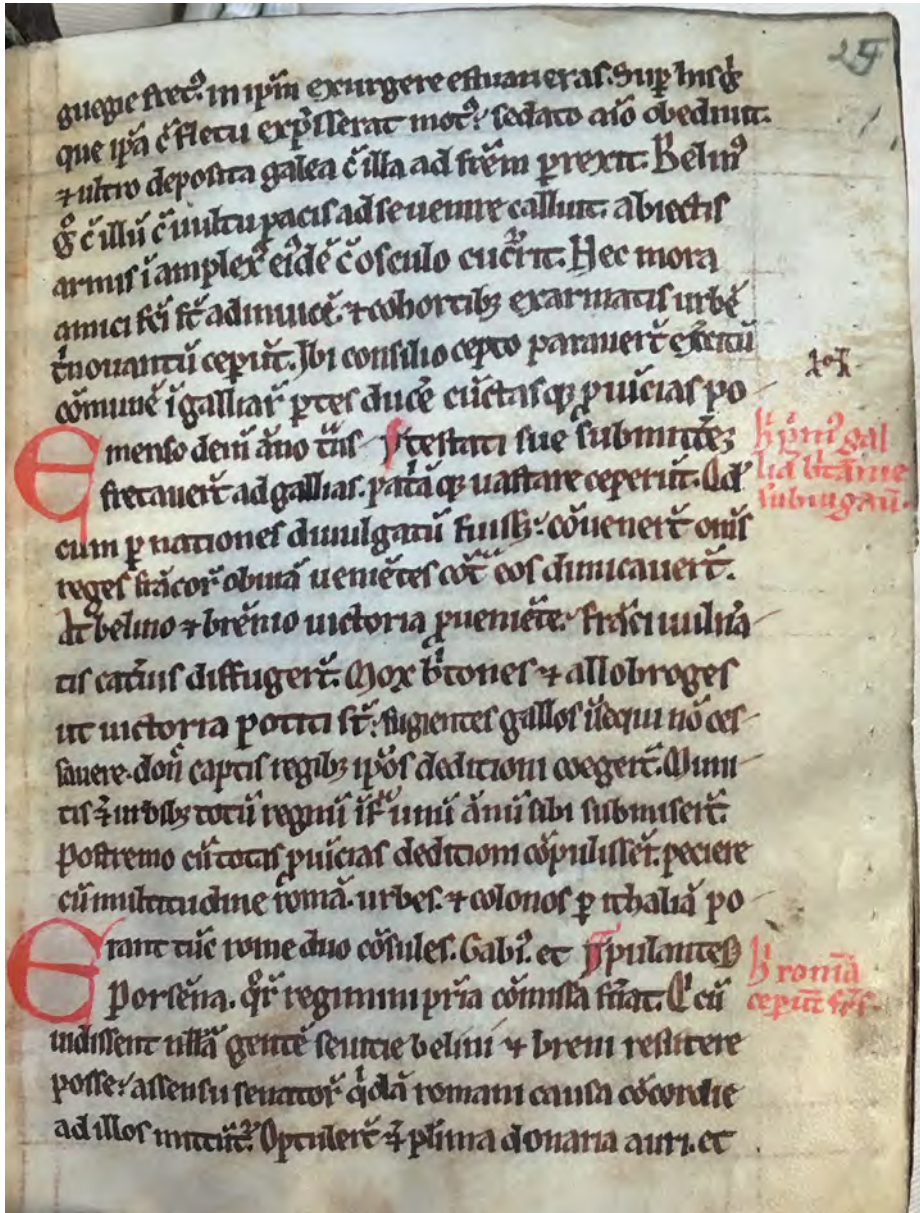 25
guegie fret᷒. in ip̄m exurgere estuaueras. Sup̱ hisg̍
que ip̄a c̄ fletu exp̍sserat mot᷒. sedato aīo obediuit.
⁊ ultro deposita galea c̄ illa ad fr̄em ꝑrexit. Belin᷒
g̊ c̄ illū c̄ uultu pacis ad se uenire calluit. abiectis
armis ī amplex᷒ eidē c̄ osculo cuc̄rit. Hec mora
amici fc̄i st̄ adinuicē. ⁊ cohortibꝫ exarmatis urbē
t̍nouantū ceper̄t. Ibi consilio cepto parauer̄t exc̄itū
cōmunē ī galliaꝝ ꝑtes ducē cūctasqꝫ ꝓuīcias po
Emenso dein āno t̍ns testati sue submittēꝫ
fretauer̄t ad gallias. pat̍āqꝫ uastare ceperūt. Qd̄
cum ꝑ nationes diuulgatū fuissꝫ. cōuener̄t om̄s
reges frācoꝝ obuiā ueniētes cōt̍ eos dimicauer̄t.
At belino ⁊ brēnio uictoria ꝓueniēte. frāci uuln̍a
tis cat̍uis diffuger̄t. Mox b̍tones ⁊ allobroges
ut uictoria potiti st̄. fugientes gallos īsequi nō ces
sauere. don̄ captis regibꝫ ip̄os deditioni coeger̄t. Muni
tis ⁊ urbibꝫ totū regnū īf̍ unū ānū sibi submiser̄t.
Postremo cū totas ꝓuīcias deditioni cōpulissēt. petiere
cū multitudine romā. urbes. ⁊ colonos ꝑ ithaliā po
Erant tūc rome duo cōsules. Gabi᷒. et pulantes
Porsēna. q̍ꝝ regimini pr̄ia cōmissa fu̍at. Q cū
uidissent nllā gentē seuitie belini ⁊ breni resistere
posse. assensu senatoꝝ q̍dā romani causa cōcordie
ad illos mittūt. Optuler̄t ⁊ pl̍ima donaria auri. et
h̍ p̍m᷒ gal
lia b̍tānie
subiugat̄.
h̍ romā
cepiūt fr̄s.